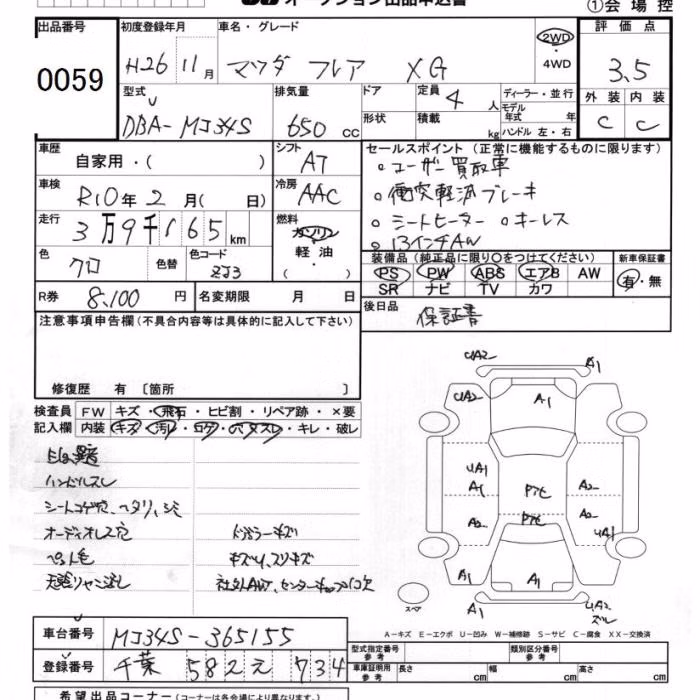 オークション出品申込書
①会場控
出品番号 初度登録年月 車名・グレード 2WD・4WD 評価点
0059 H26 11月 マツダ フレア XG 3.5
型式 排気量 ドア 定員 4人 ディーラー・並行 外装 内装
DBA-MJ34S 650cc 形状 積載 kg モデル年式 年 C C
ハンドル 左・右
車歴 シフト セールスポイント (正常に機能するものに限ります)
自家用・( ) AT ○ユーザー買取車
車検 冷房 ○衝突軽減ブレーキ
R10年2月( 日) AAC ○シートヒーター ○キーレス
走行 燃料 ○13インチAW
3万9千165km ガソリン・軽油・( )
装備品(純正品に限り○をつけてください) 新車保証書
色 クロ 色替 色コード ZJ3
PS PW ABS エアB AW 有・無
SR ナビ TV カワ
R券 8,100円 名変期限 月 日 後日品
保証書
注意事項申告欄(不具合内容等は具体的に記入して下さい)
修復歴 有〔箇所 〕
検査員 FW キズ・飛石・ヒビ割・リペア跡・×要
記入欄 内装 キズ・汚レ・コゲ・穴・スレ・キレ・破レ
ハンドルスレ
シートコゲ穴、ヘタリ、シミ
オーディオレス穴 ドバラーキズ
ペット毛 キズ、スリキズ
社外AW、センターキャップ1コ欠
UA2 A1
UA2 A1
UA1
A1 A2
A2 A2
UA1
A1 A1 A1
スペア A1 UA2
スレ
A-キズ E-エクボ U-凹み W-補修跡 S-サビ C-腐食 XX-交換済
車台番号 MJ34S-365155
型式指定番号 参考 類別区分番号 参考
登録番号 千葉 582 え 734
車庫証明用 参考 長さ cm 幅 cm 高さ cm
希望出品コーナー(コーナーは各会場により異なります。)